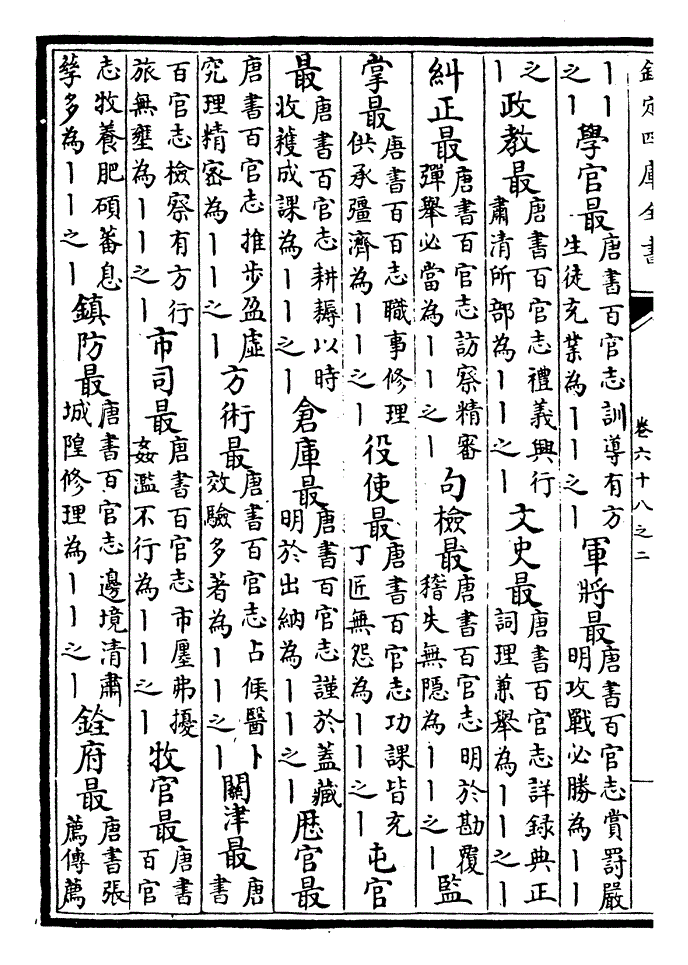 欽定四庫全書 卷六十八之二
丨丨之丨學官最唐書百官志訓導有方生徒充業為丨丨之丨軍將最唐書百官志賞罰嚴明攻戰必勝為丨丨
之丨政教最唐書百官志禮義興行肅清所部為丨丨之丨文史最唐書百官志詳録典正詞理兼舉為丨丨之丨
糾正最唐書百官志訪察精審彈舉必當為丨丨之丨句檢最唐書百官志明於勘覆稽失無隐為丨丨之丨監
掌最唐書百百志職事修理供承彊濟為丨丨之丨役使最唐書百官志功課皆充丁匠無怨為丨丨之丨屯官
最唐書百官志耕耨以時收穫成課為丨丨之丨倉庫最唐書百官志謹於蓋藏明於出納為丨丨之丨厯官最
唐書百官志推步盈虚究理精宻為丨丨之丨方術最唐書百官志占候醫卜效驗多著為丨丨之丨關津最唐書
百官志檢察有方行旅無壅為丨丨之丨市司最唐書百官志市㕓弗擾姦濫不行為丨丨之丨牧官最唐書百官
志牧養肥碩蕃息孳多為丨丨之丨鎮防最唐書百官志邊境清肅城隍修理為丨丨之丨銓府最唐書張薦傳薦